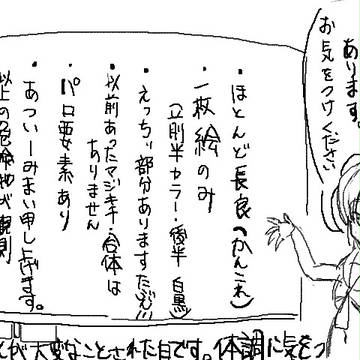 あります。
お気をつけください
・ほとんど長良(かんこれ)
・一枚絵のみ
(前半カラー・後半 白黒)
・えっちぃ部分ありますだぞ!!
・以前あったマジキチ・合体は
ありません
・パロ要素あり
・あついーみまい申し上げます。
以上の危険物が観測
が大変なことされた日です。体調に気をつ